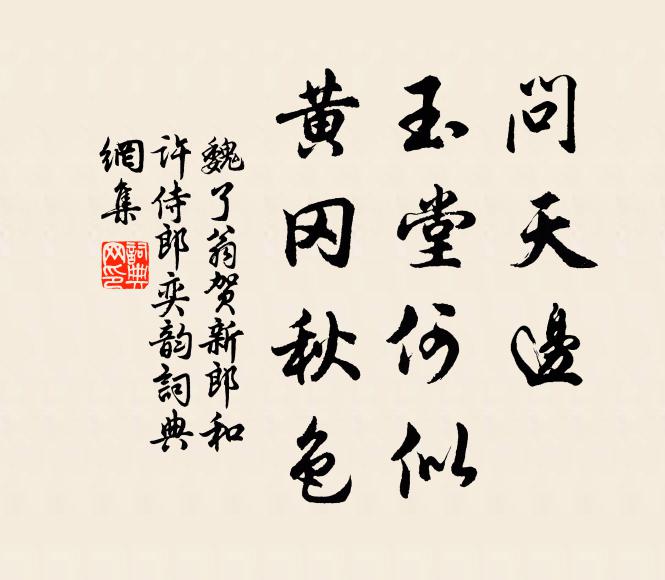 問天邊
玉堂何似
黄冈秋色
魏了翁贺新郎和
许侍郎奕韵詞典
網集
詞典
网印